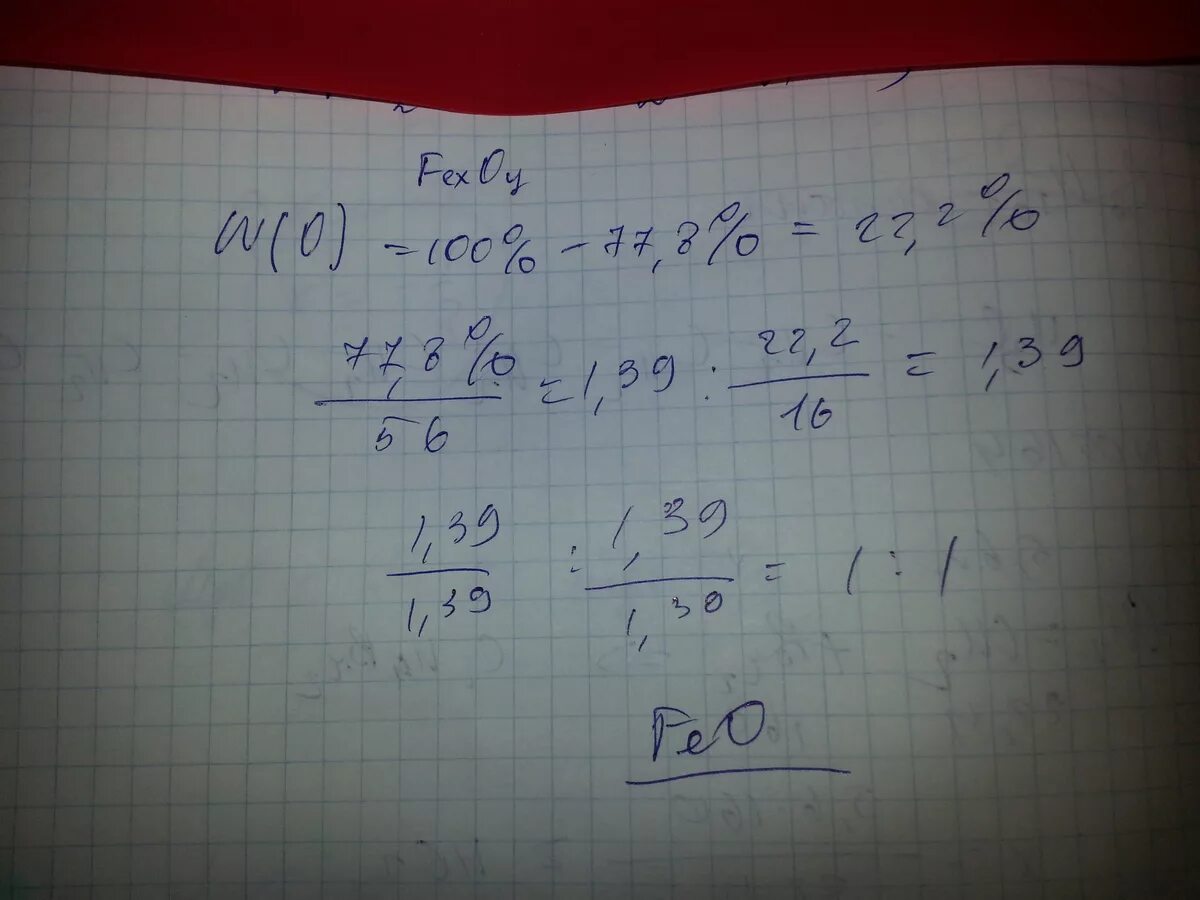 FexOy
W(O) = 100% - 77,8% = 22,2%
77,8% / 56 = 1,39 : 22,2 / 16 = 1,39
1,39 / 1,39 : 1,39 / 1,39 = 1 : 1
FeO